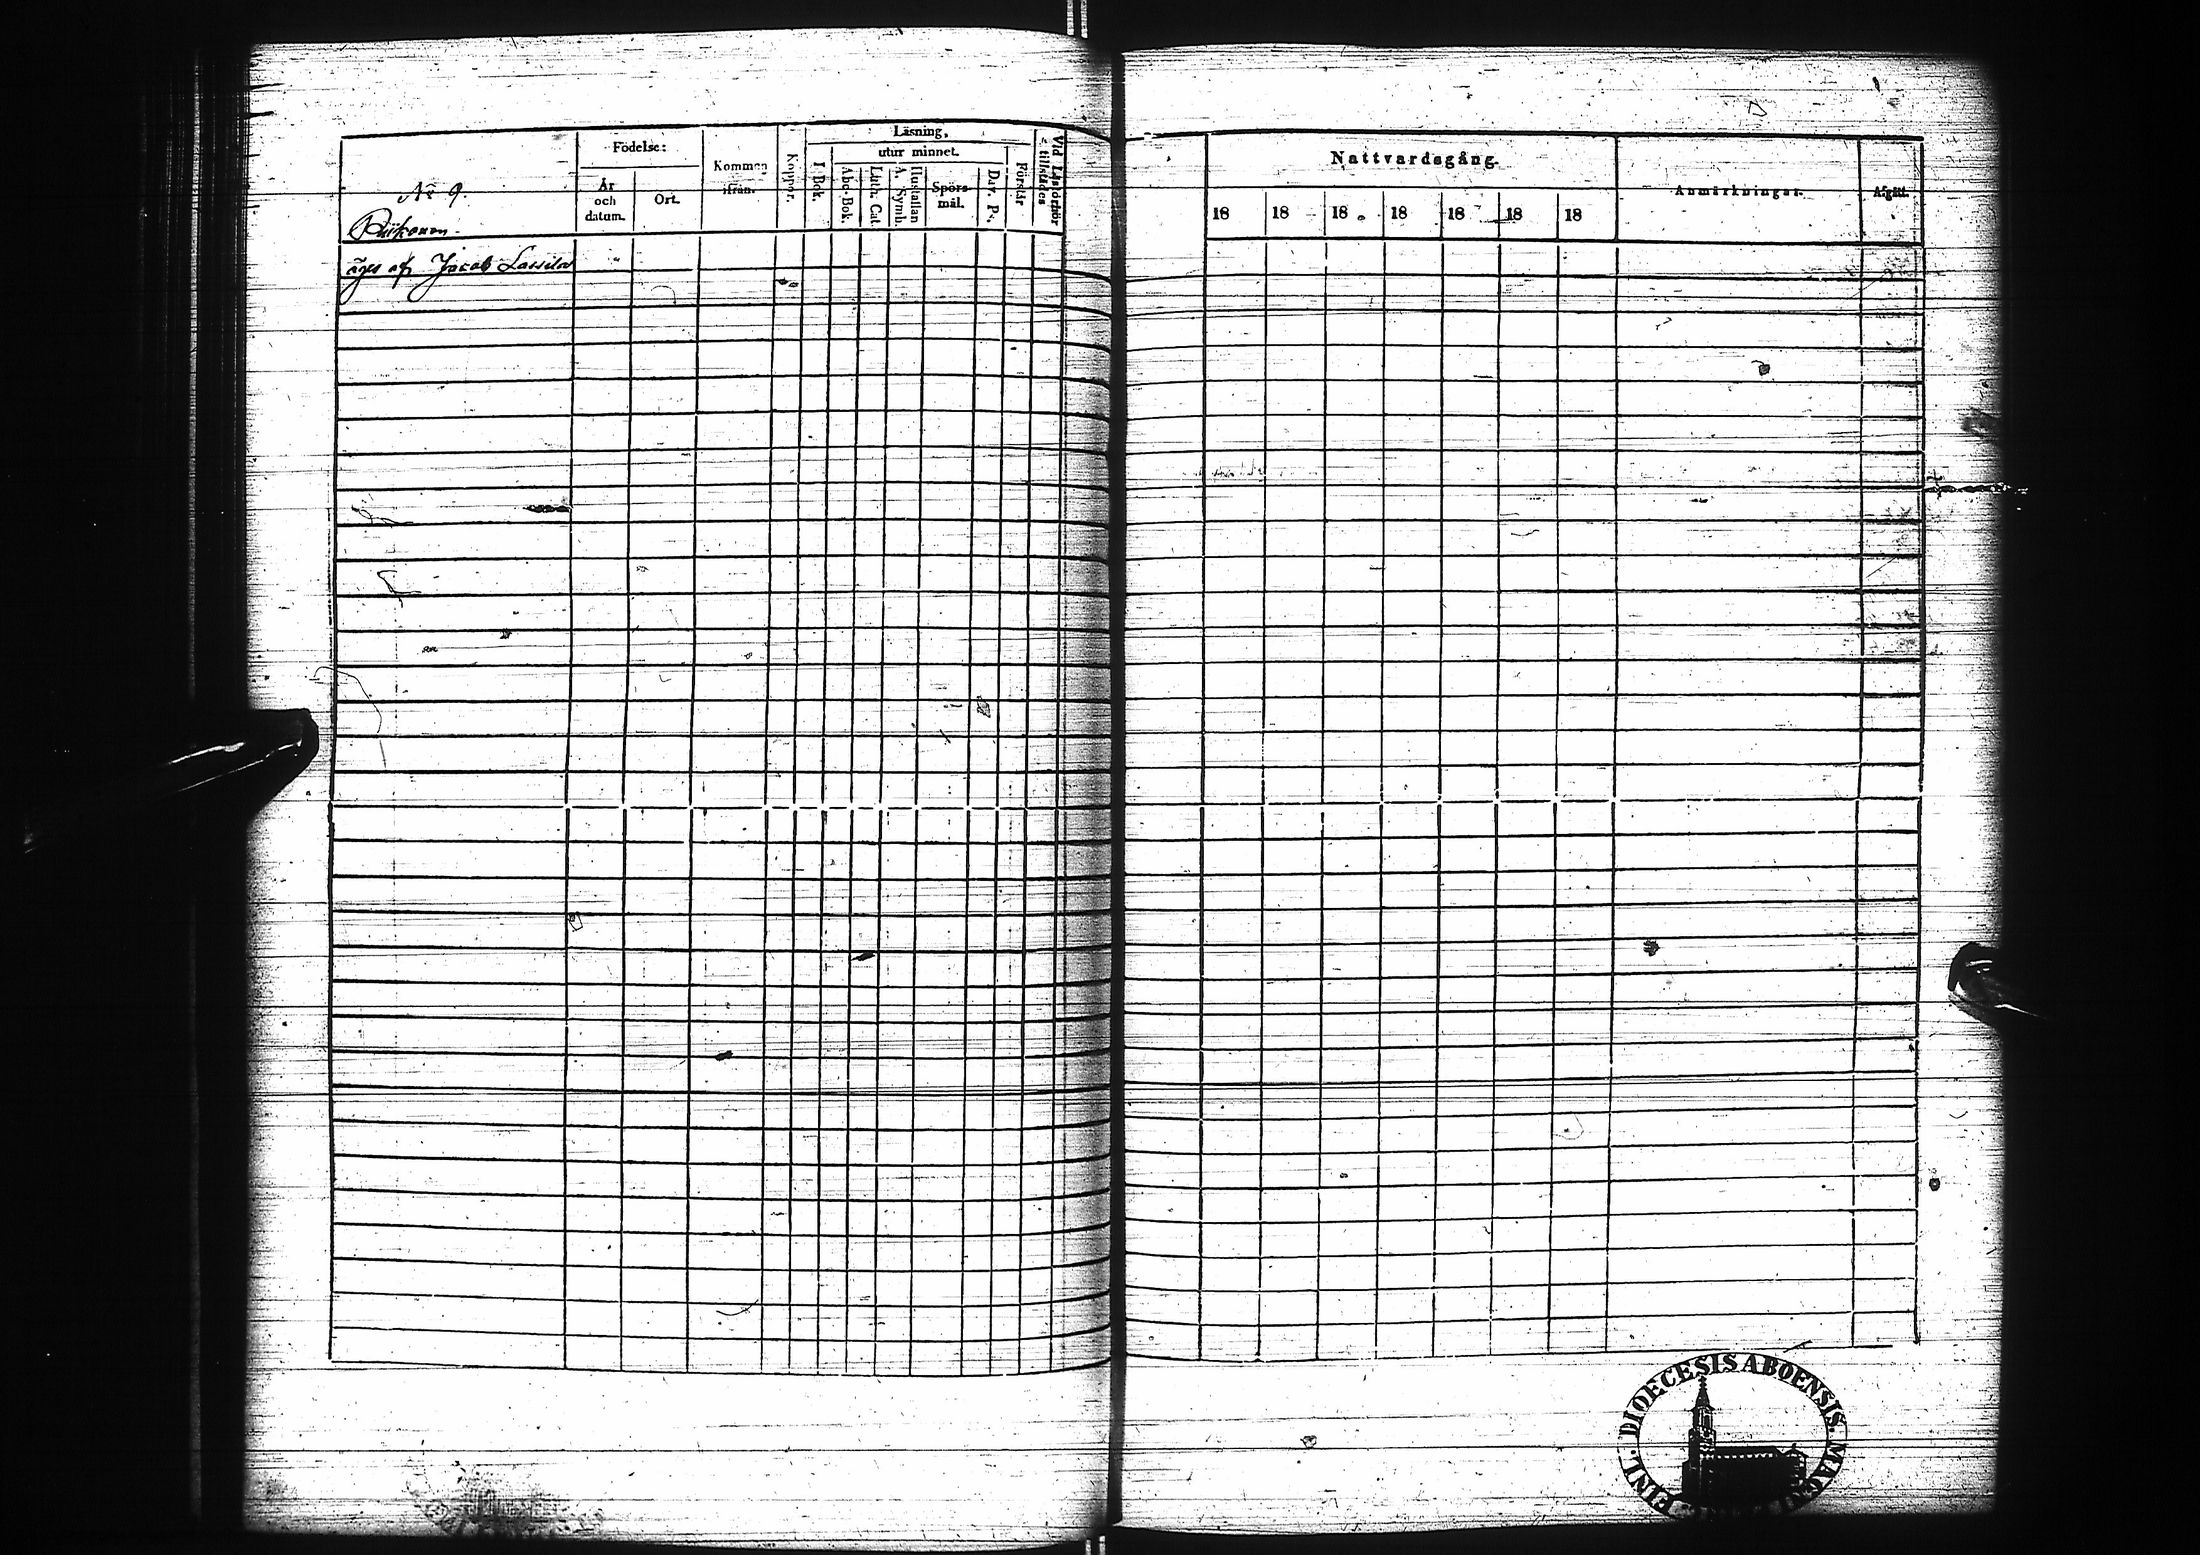 No 9.
Födelse:
År
och
datum.
Ort.
Kommen
ifrån.
Koppor.
Läsning,
I Bok.
utur minnet.
Abc-Bok.
Luth. Cat.
A. Symb.
Hustaflan
Spörs-
mål.
Dav. Ps.
Förstår
Vid Läsförhör
tillstädes
äges af Jacob Lassila
Nattvardsgång.
18 18 18 18 18 18 18
Anmärkningar.
Afgått.
DIOECESIS ABOENSIS.